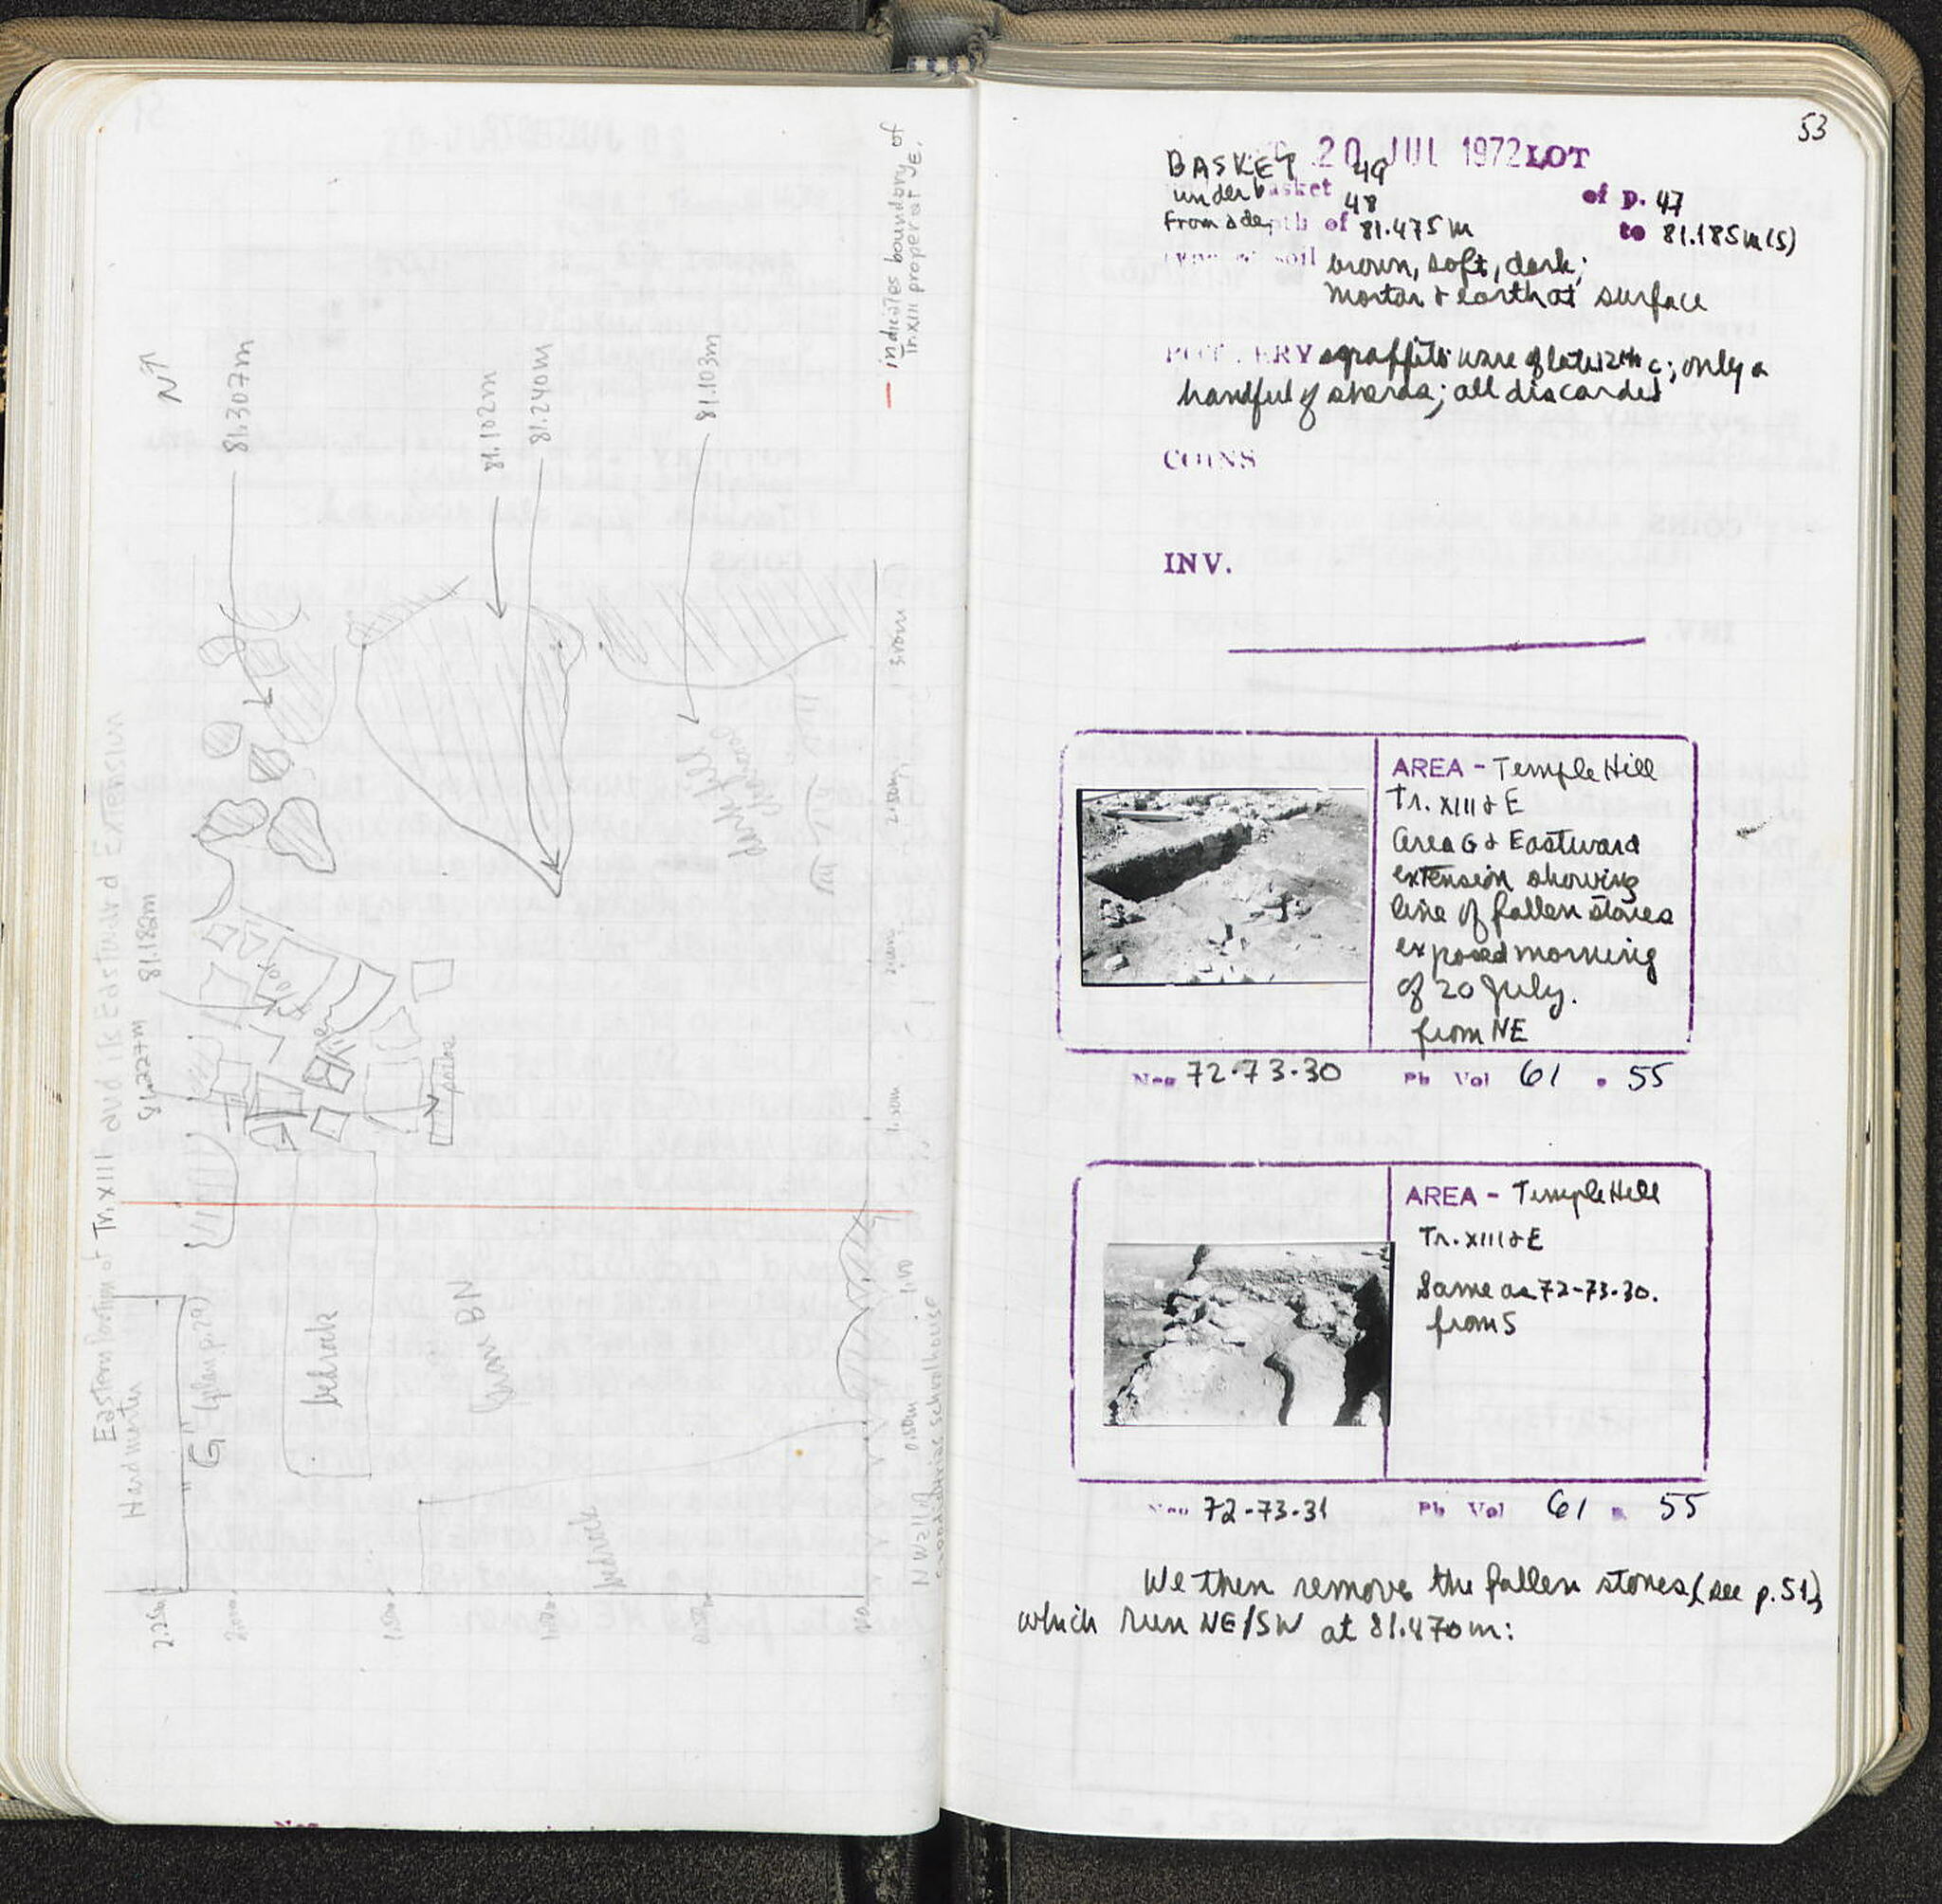 Eastern portion of Tr. XIII and its Eastward Extension
Hardminter
N
81.307m
81.102m
81.240m
81.103m
— indicates boundary of
Tr.XIII proper at E.
81.188m
81.227m
dark fill
"G" (plan p.29)
bedrock
bedrock
2.00m
1.50m
1.00
0.50m
2.50m
53
20 JUL 1972 LOT
BASKET 49
under basket 48 of p. 47
From a depth of 81.475m to 81.185m(s)
type of soil brown, soft, dark;
mortar & earth at surface
POTTERY sgraffito ware of late 12th c; only a
handful of sherds; all discarded
COINS
INV.
AREA - Temple Hill
Tr. XIII & E
Area G & Eastward
extension showing
line of fallen stones
exposed morning
of 20 July.
from NE
Neg 72-73-30 Ph Vol 61 p 55
AREA - Temple Hill
Tr. XIII & E
Same as 72-73-30.
from S
Neg 72-73-31 Ph Vol 61 p 55
We then remove the fallen stones, (see p.51)
which run NE/SW at 81.470m:
Neg